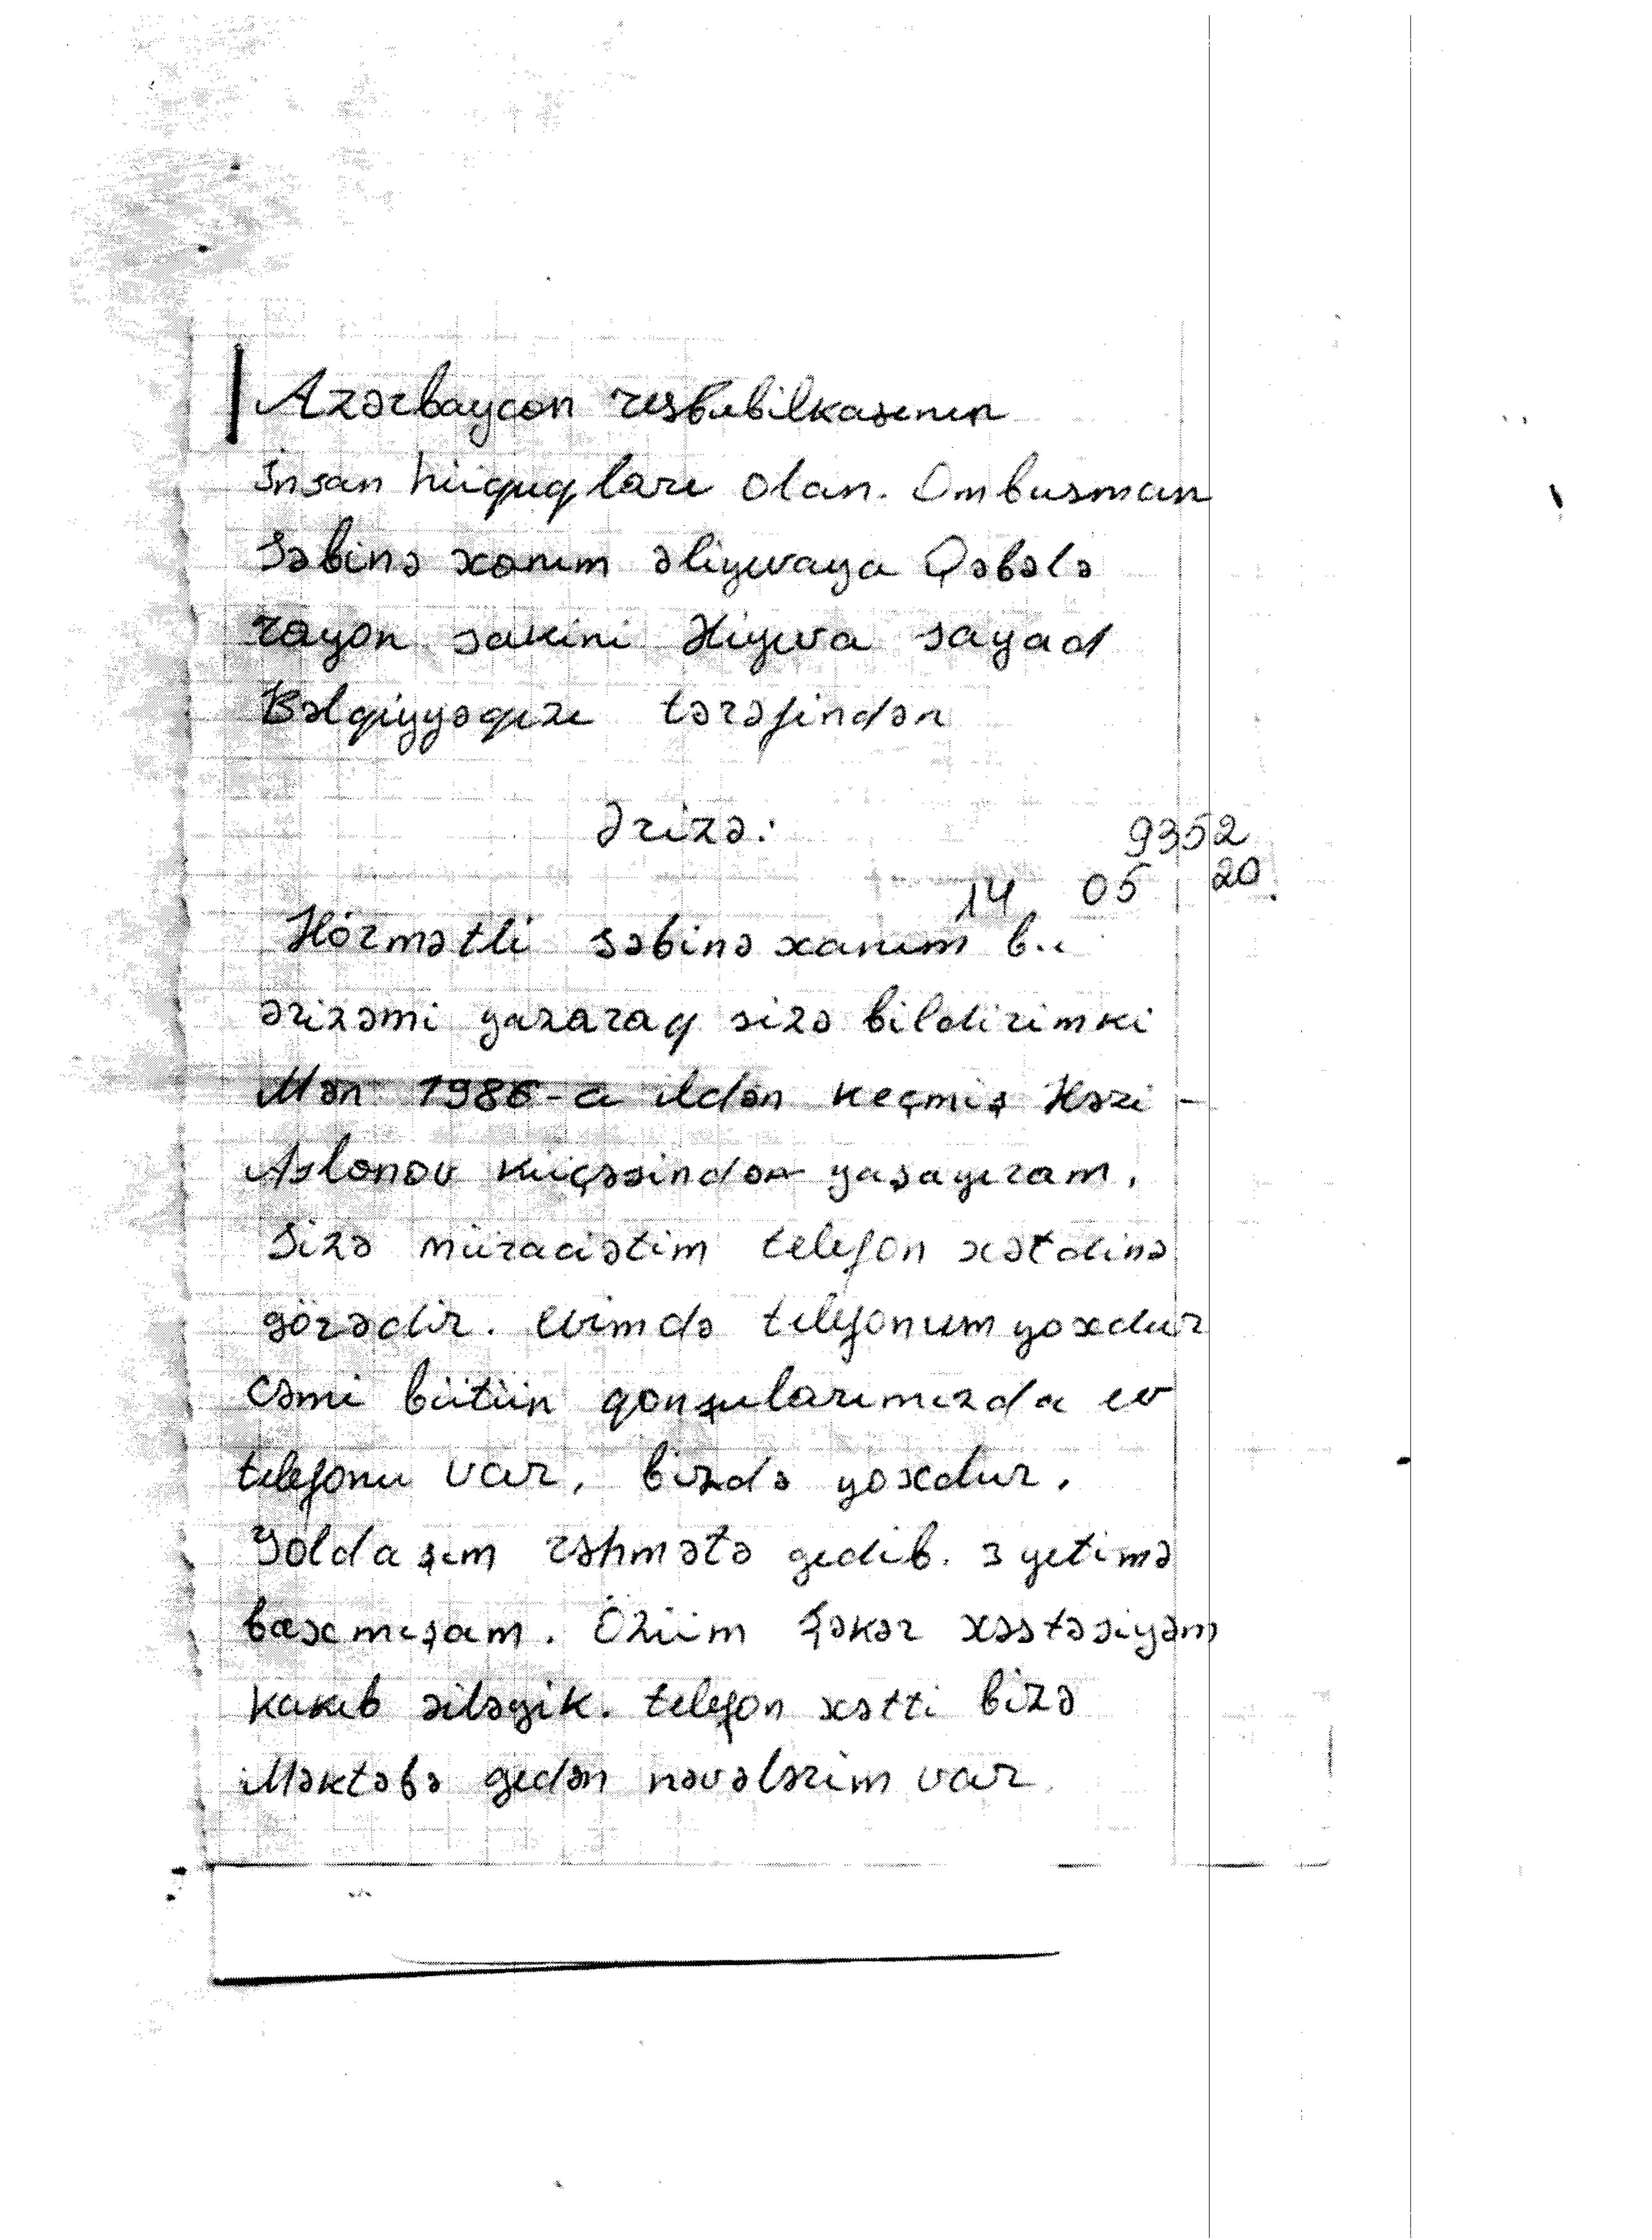 Azərbaycan resbubilkasının
İnsan hüquqları olan. Ombusman
Səbinə xanım əliyevaya Qəbələ
rayon sakini Əliyeva sayad
Bəlqiyyəqızı tərəfindən
Ərizə:
9352
14 05 20.
Hörmətli səbinə xanım bu
ərizəmi yazaraq sizə bildirimki
Mən 1986-a ildən keçmiş Həzi-
Aslanov küçəsindən yaşayıram.
Sizə müraciətim telefon xətdinə
görədir. evimdə telefonum yoxdur
Cəmi bütün qonşularımızda ev
telefonu var, bizdə yoxdur.
Yoldaşım rəhmətə gedib. 3 yetimə
baxmışam. Özüm şəkər xəstəsiyəm
kasıb əiləyik. telefon xətti bizə
Məktəbə gedən nəvələrim var